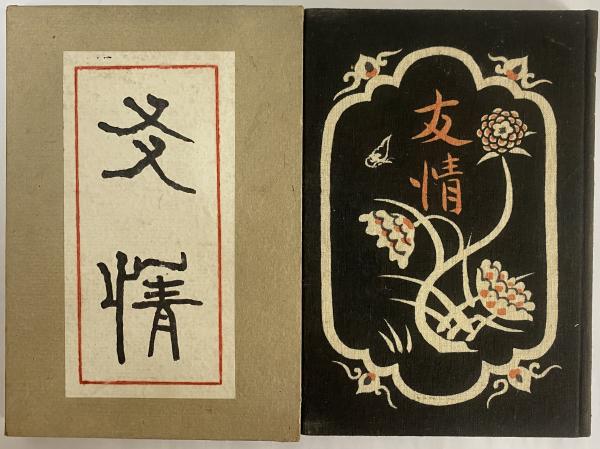 友
情
友
情